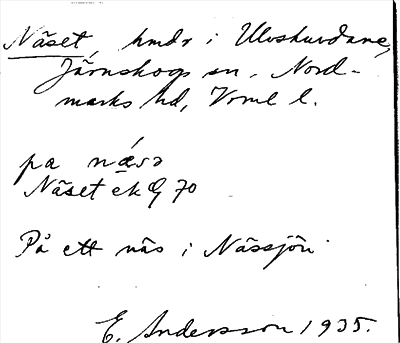 Näset, hmdr i Ulvskurdane,
Järnskogs sn, Nord-
marks hd, Vrml l.
pa nǽsə
Näset ek G 70
På ett näs i Nässjön
E. Andersson 1935.